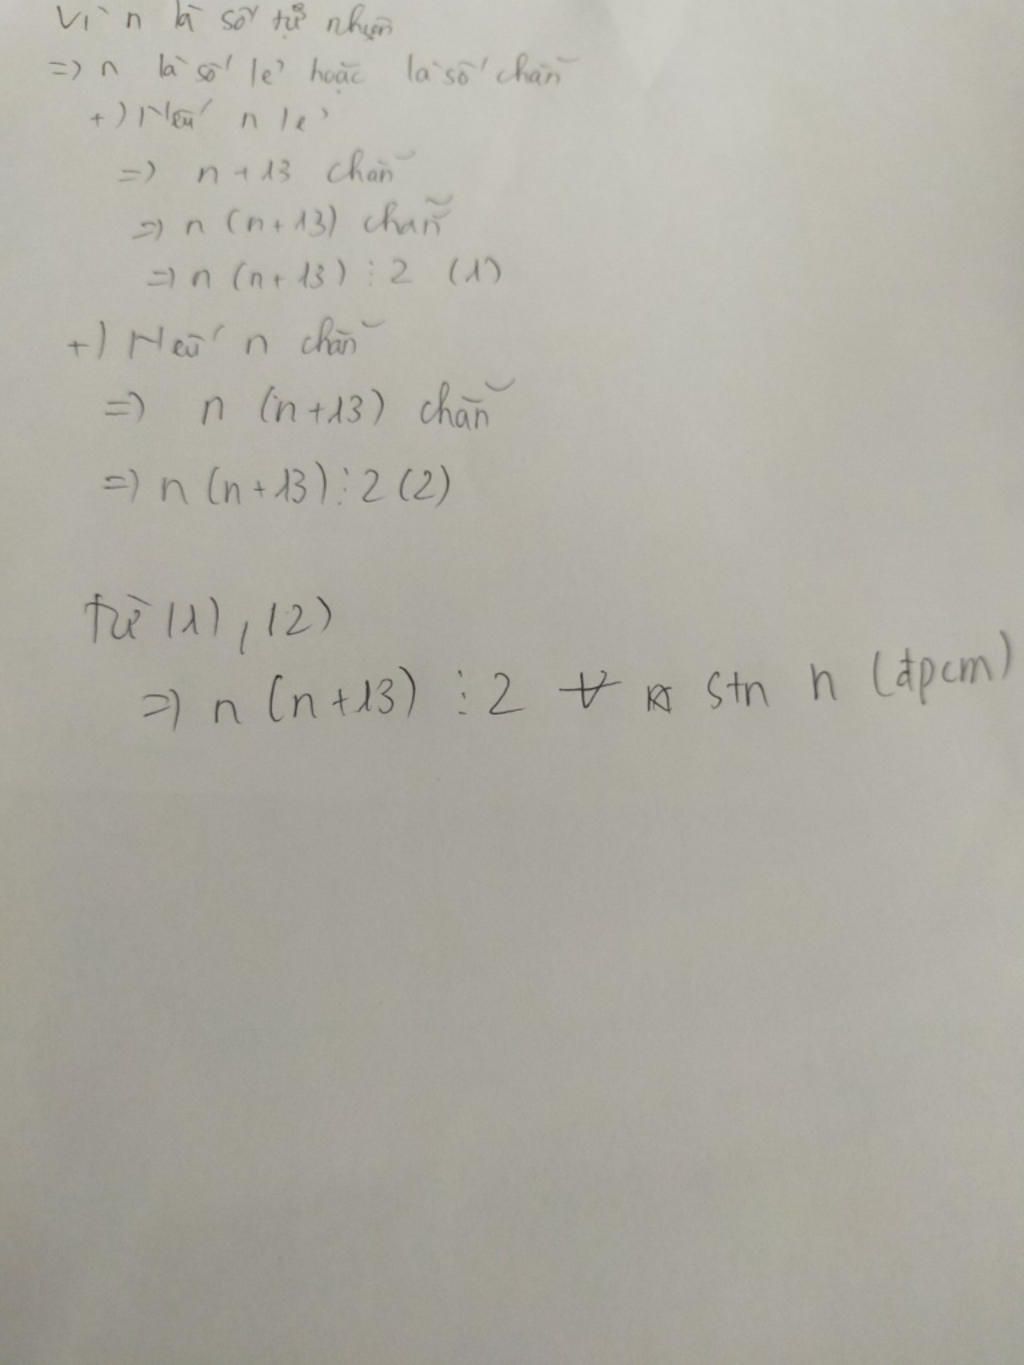 Vì n là số tự nhiên
=> n là số lẻ hoặc là số chẵn
+) Nếu n lẻ
=> n + 13 chẵn
=> n (n + 13) chẵn
=> n (n + 13) ⋮ 2 (1)
+) Nếu n chẵn
=> n (n + 13) chẵn
=> n (n + 13) ⋮ 2 (2)
từ (1), (2)
=> n (n + 13) ⋮ 2 ∀ stn n (đpcm)